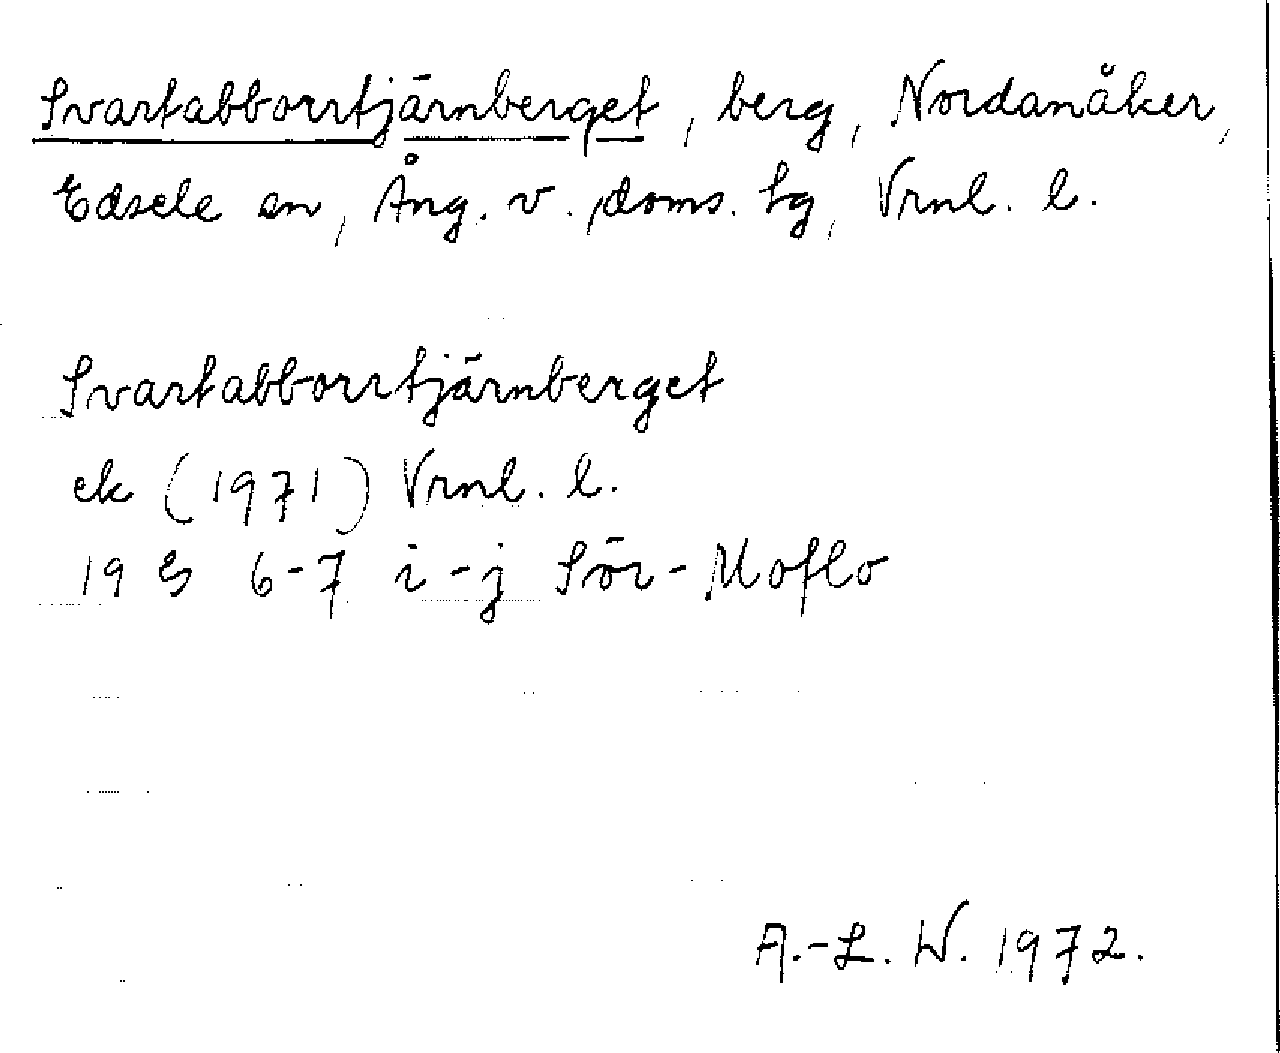 Svartabborrtjärnberget, berg, Nordanåker,
Edsele sn, Ång. v. doms. tg, Vrnl. l.
Svartabborrtjärnberget
ek (1971) Vrnl. l.
19 G 6-7 i-j Sör-Moflo
A.-L. W. 1972.